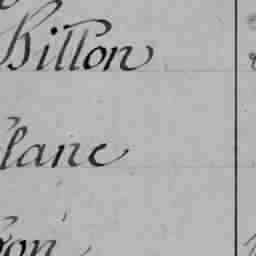 Billon
lanc
on